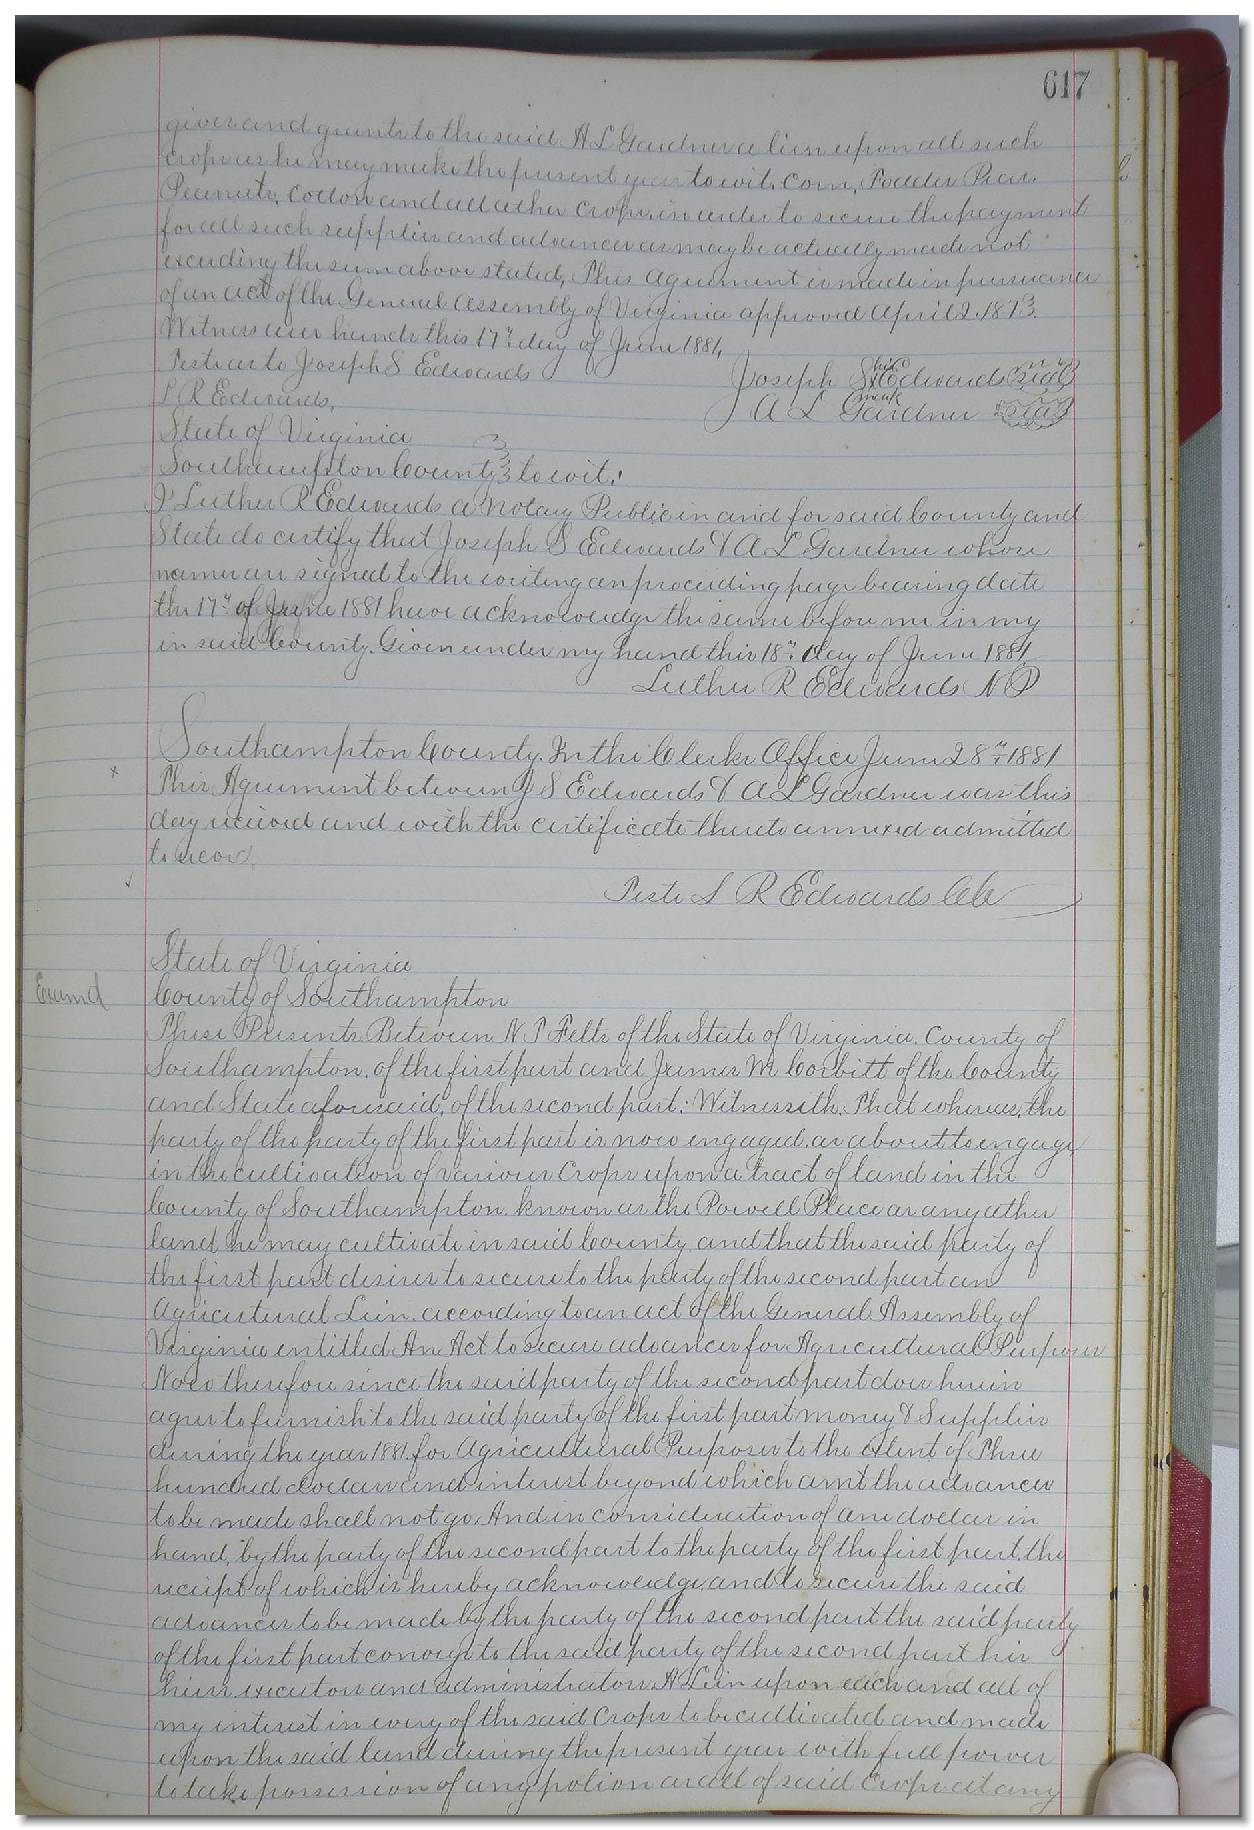 617
gives and grants to the said A L Gardner a lien upon all such
crops as he may make the present year to wit, Corn, Fodder Peas.
Peanuts, Cotton and all other crops, in order to secure the payment
for all such supplies and advances as may be actually made not
exceeding the sum above stated, This agreement is made in pursuance
of an act of the General Assembly of Virginia approved April 2. 1873.
Witness our hands this 17th day of June 1881,
Teste as to Joseph S Edwards
Joseph S his Edwards seal
mark
L R Edwards,
A L Gardner seal
State of Virginia
Southampton County to wit:
I Luther R Edwards a Notary Public in and for said County and
State do certify that Joseph S Edwards & A L Gardner whose
names are signed to the writing on preceeding page bearing date
the 17th of June 1881 have acknowledge the same before me in my
in said County. Given under my hand this 18th day of June 1881
Luther R Edwards N P
Southampton County. In the Clerks Office June 28th 1881
x
This Agreement between J S Edwards & A L Gardner was this
day received and with the certificate thereto annexed admitted
to record,
Teste L R Edwards Clk
State of Virginia
Examd
County of Southampton
These Presents Between N. T Felts of the State of Virginia. County of
Southampton, of the first part and James M Corbitt of the County
and State aforesaid, of the second part: Witnesseth, That whereas, the
party of the party of the first part is now engaged, or about to engage
in the cultivation of various Crops upon a tract of land in the
County of Southampton, known as the Powell Place or any other
land he may cultivate in said County, and that the said party of
the first part desires to secure to the party of the second part an
Agricultural Lien, according to an act of the General Assembly of
Virginia entitled An Act to secure advances for Agricultural Purposes
Now therefore since the said party of the second part does herein
agree to furnish to the said party of the first part money & Supplies
during the year 1881 for Agricultural Purposes to the extent of Three
hundred dollars and interest beyond which amt the advances
to be made shall not go. And in consideration of one dollar in
hand, by the party of the second part to the party of the first part, the
receipt of which is hereby acknowledge, and to secure the said
advances to be made by the party of the second part the said party
of the first part conveys to the said party of the second part his
heirs, executors and administrators, A Lien upon each and all of
my interest in every of the said Crops to be cultivated and made
upon the said land during the present year with full power
to take possession of any potion or all of said Crops at any